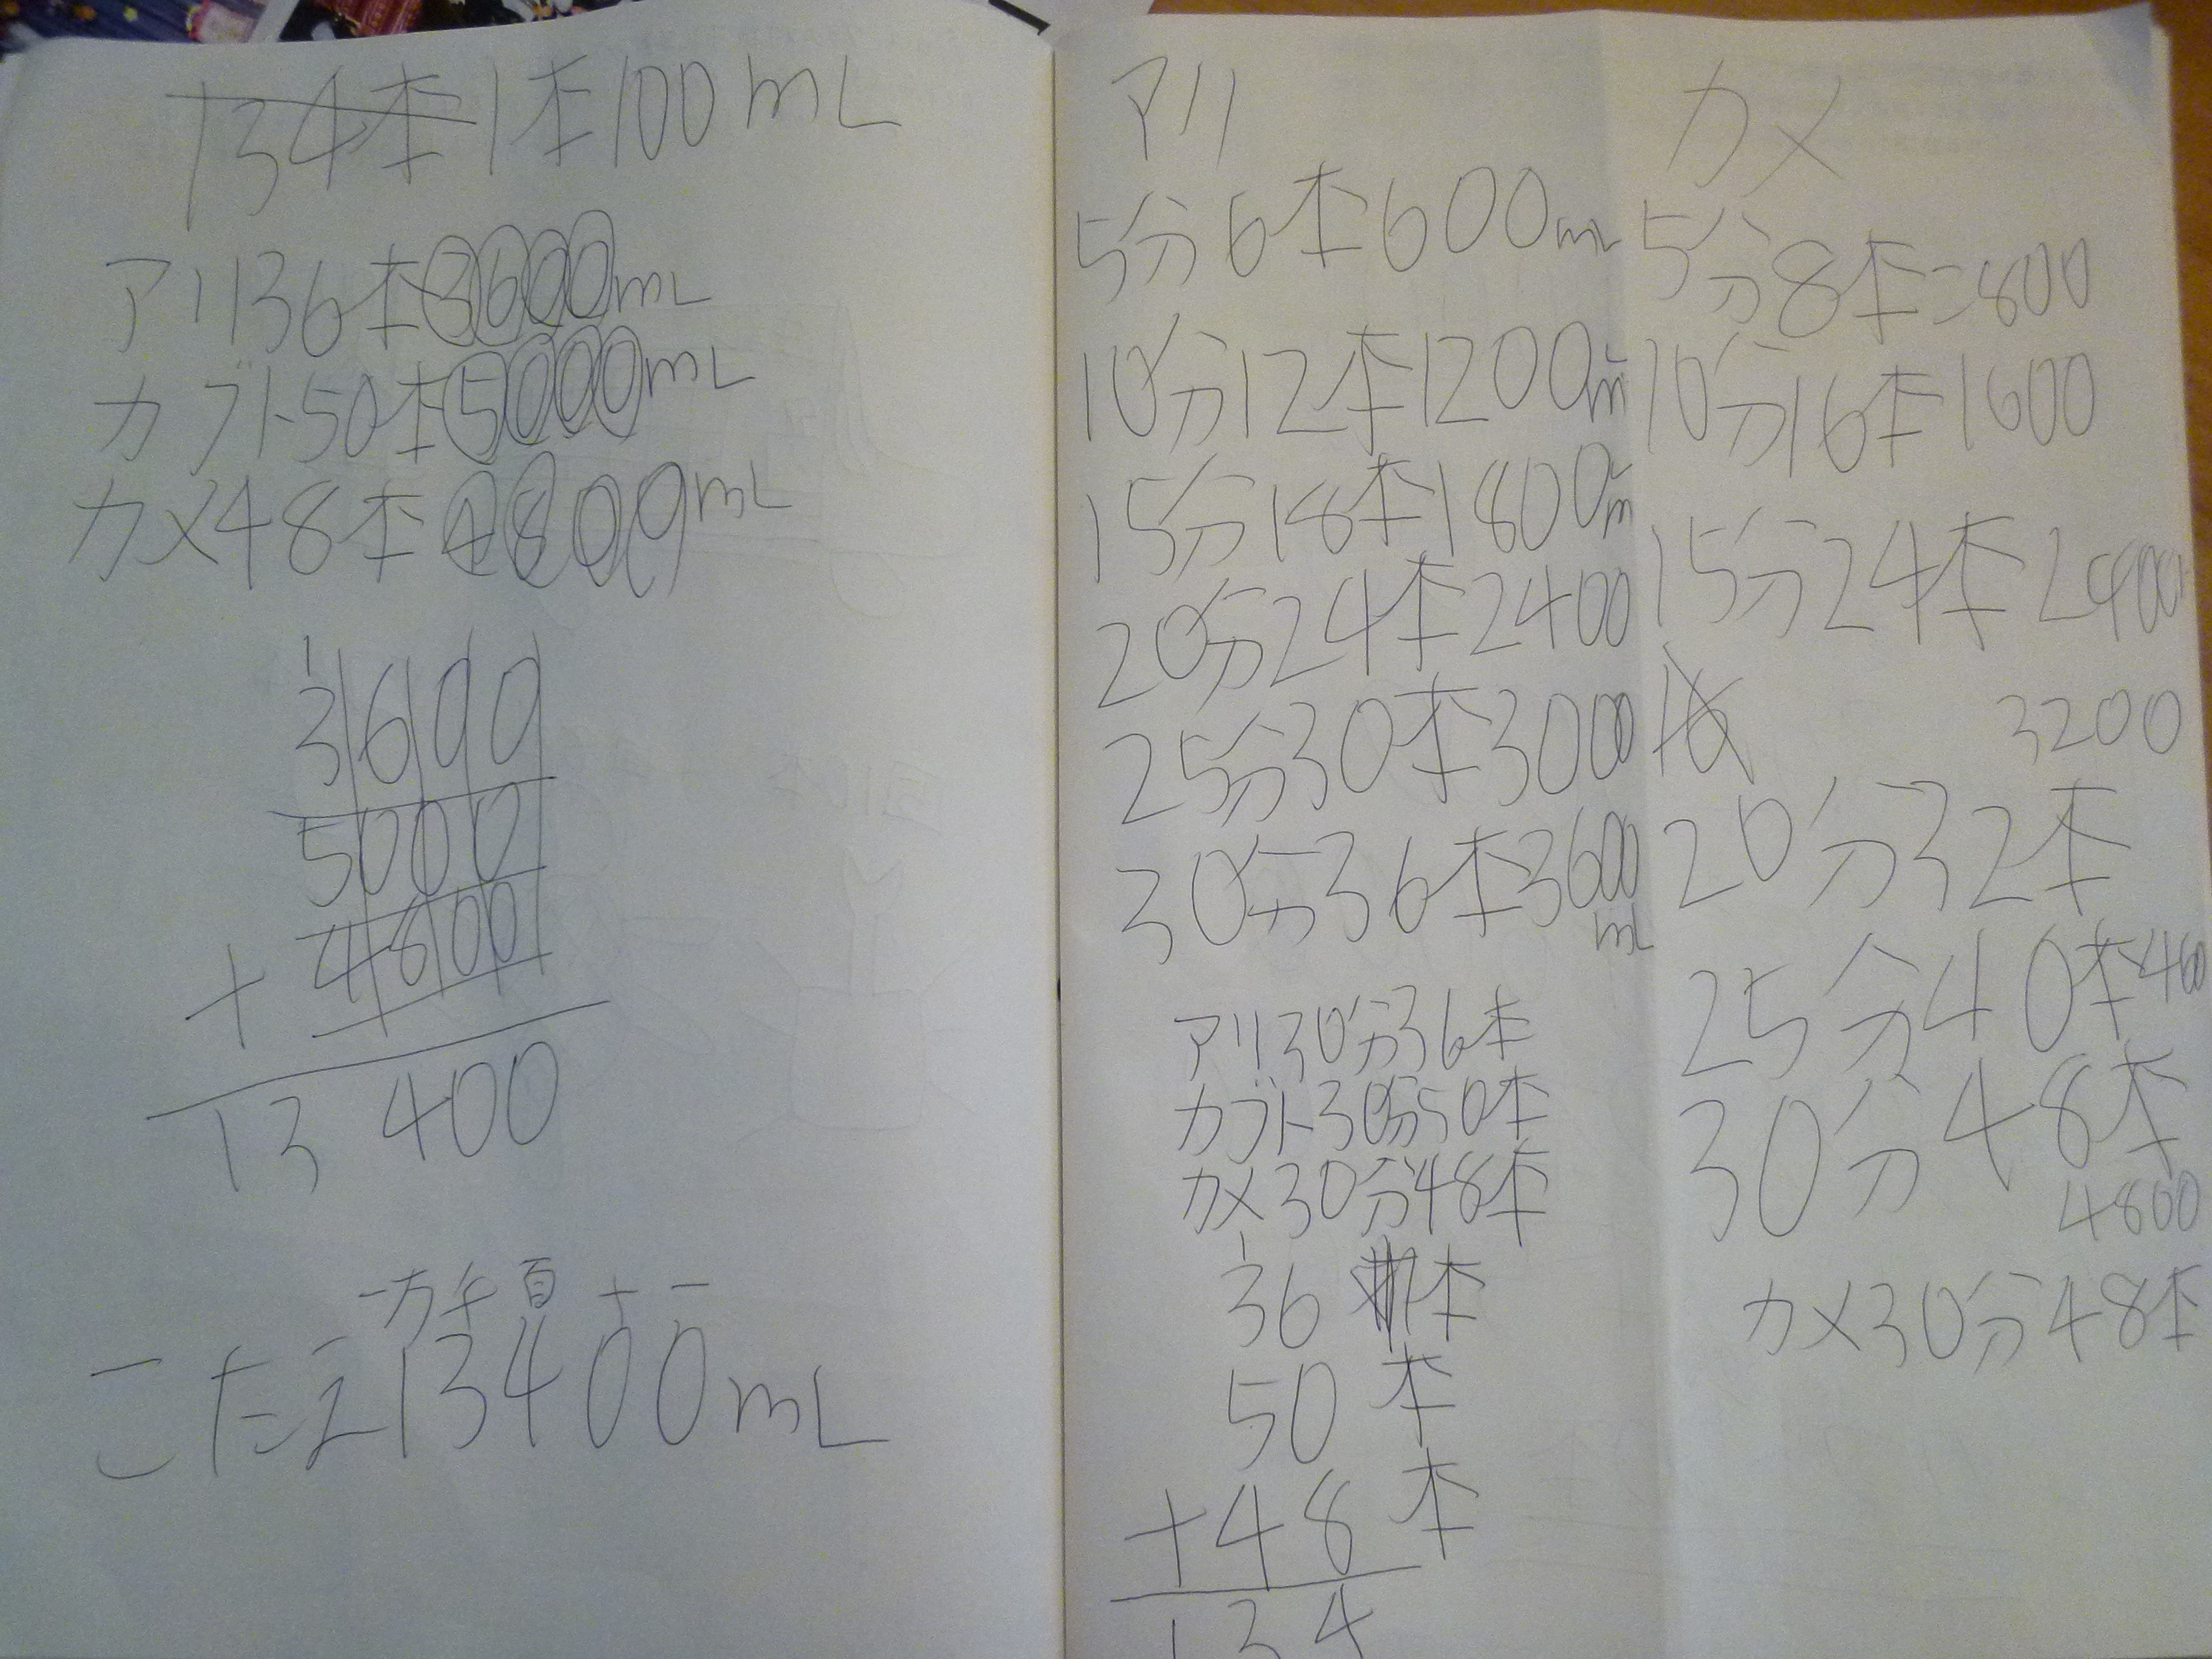 134本1本100mL
アリ36本3600mL
カブト50本5000mL
カメ48本4800mL
1
3600
5000
+4800
13400
一万千百十一
こたえ13400mL
アリ
5分6本600mL
10分12本1200mL
15分18本1800mL
20分24本2400
25分30本3000
30分36本3600
mL
アリ30分36本
カブト30分50本
カメ30分48本
1
36本
50本
+48本
134
カメ
5分8本=800
10分16本1600
15分24本2400
3200
20分32本
25分40本
30分48本
4800
カメ30分48本